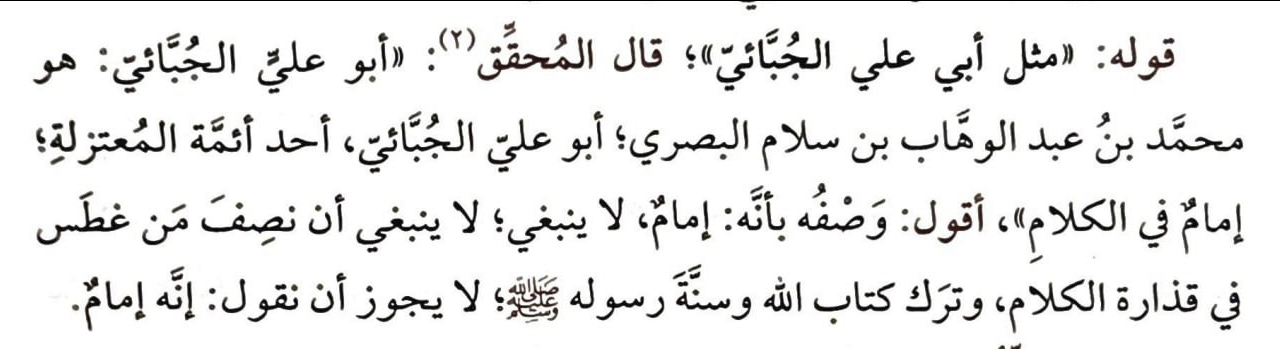 قوله: «مثل أبي علي الجُبَّائيّ»؛ قال المُحقِّق(٢): «أبو عليٍّ الجُبَّائيّ: هو
محمَّد بنُ عبد الوهَّاب بن سلام البصري؛ أبو عليّ الجُبَّائيّ، أحد أئمَّة المُعتزلةِ؛
إمامٌ في الكلامِ»، أقول: وَصْفُه بأنَّه: إمامٌ، لا ينبغي؛ لا ينبغي أن نصِفَ مَن غطَس
في قذارة الكلام، وترَك كتاب الله وسنَّةَ رسوله ﷺ؛ لا يجوز أن نقول: إنَّه إمامٌ.